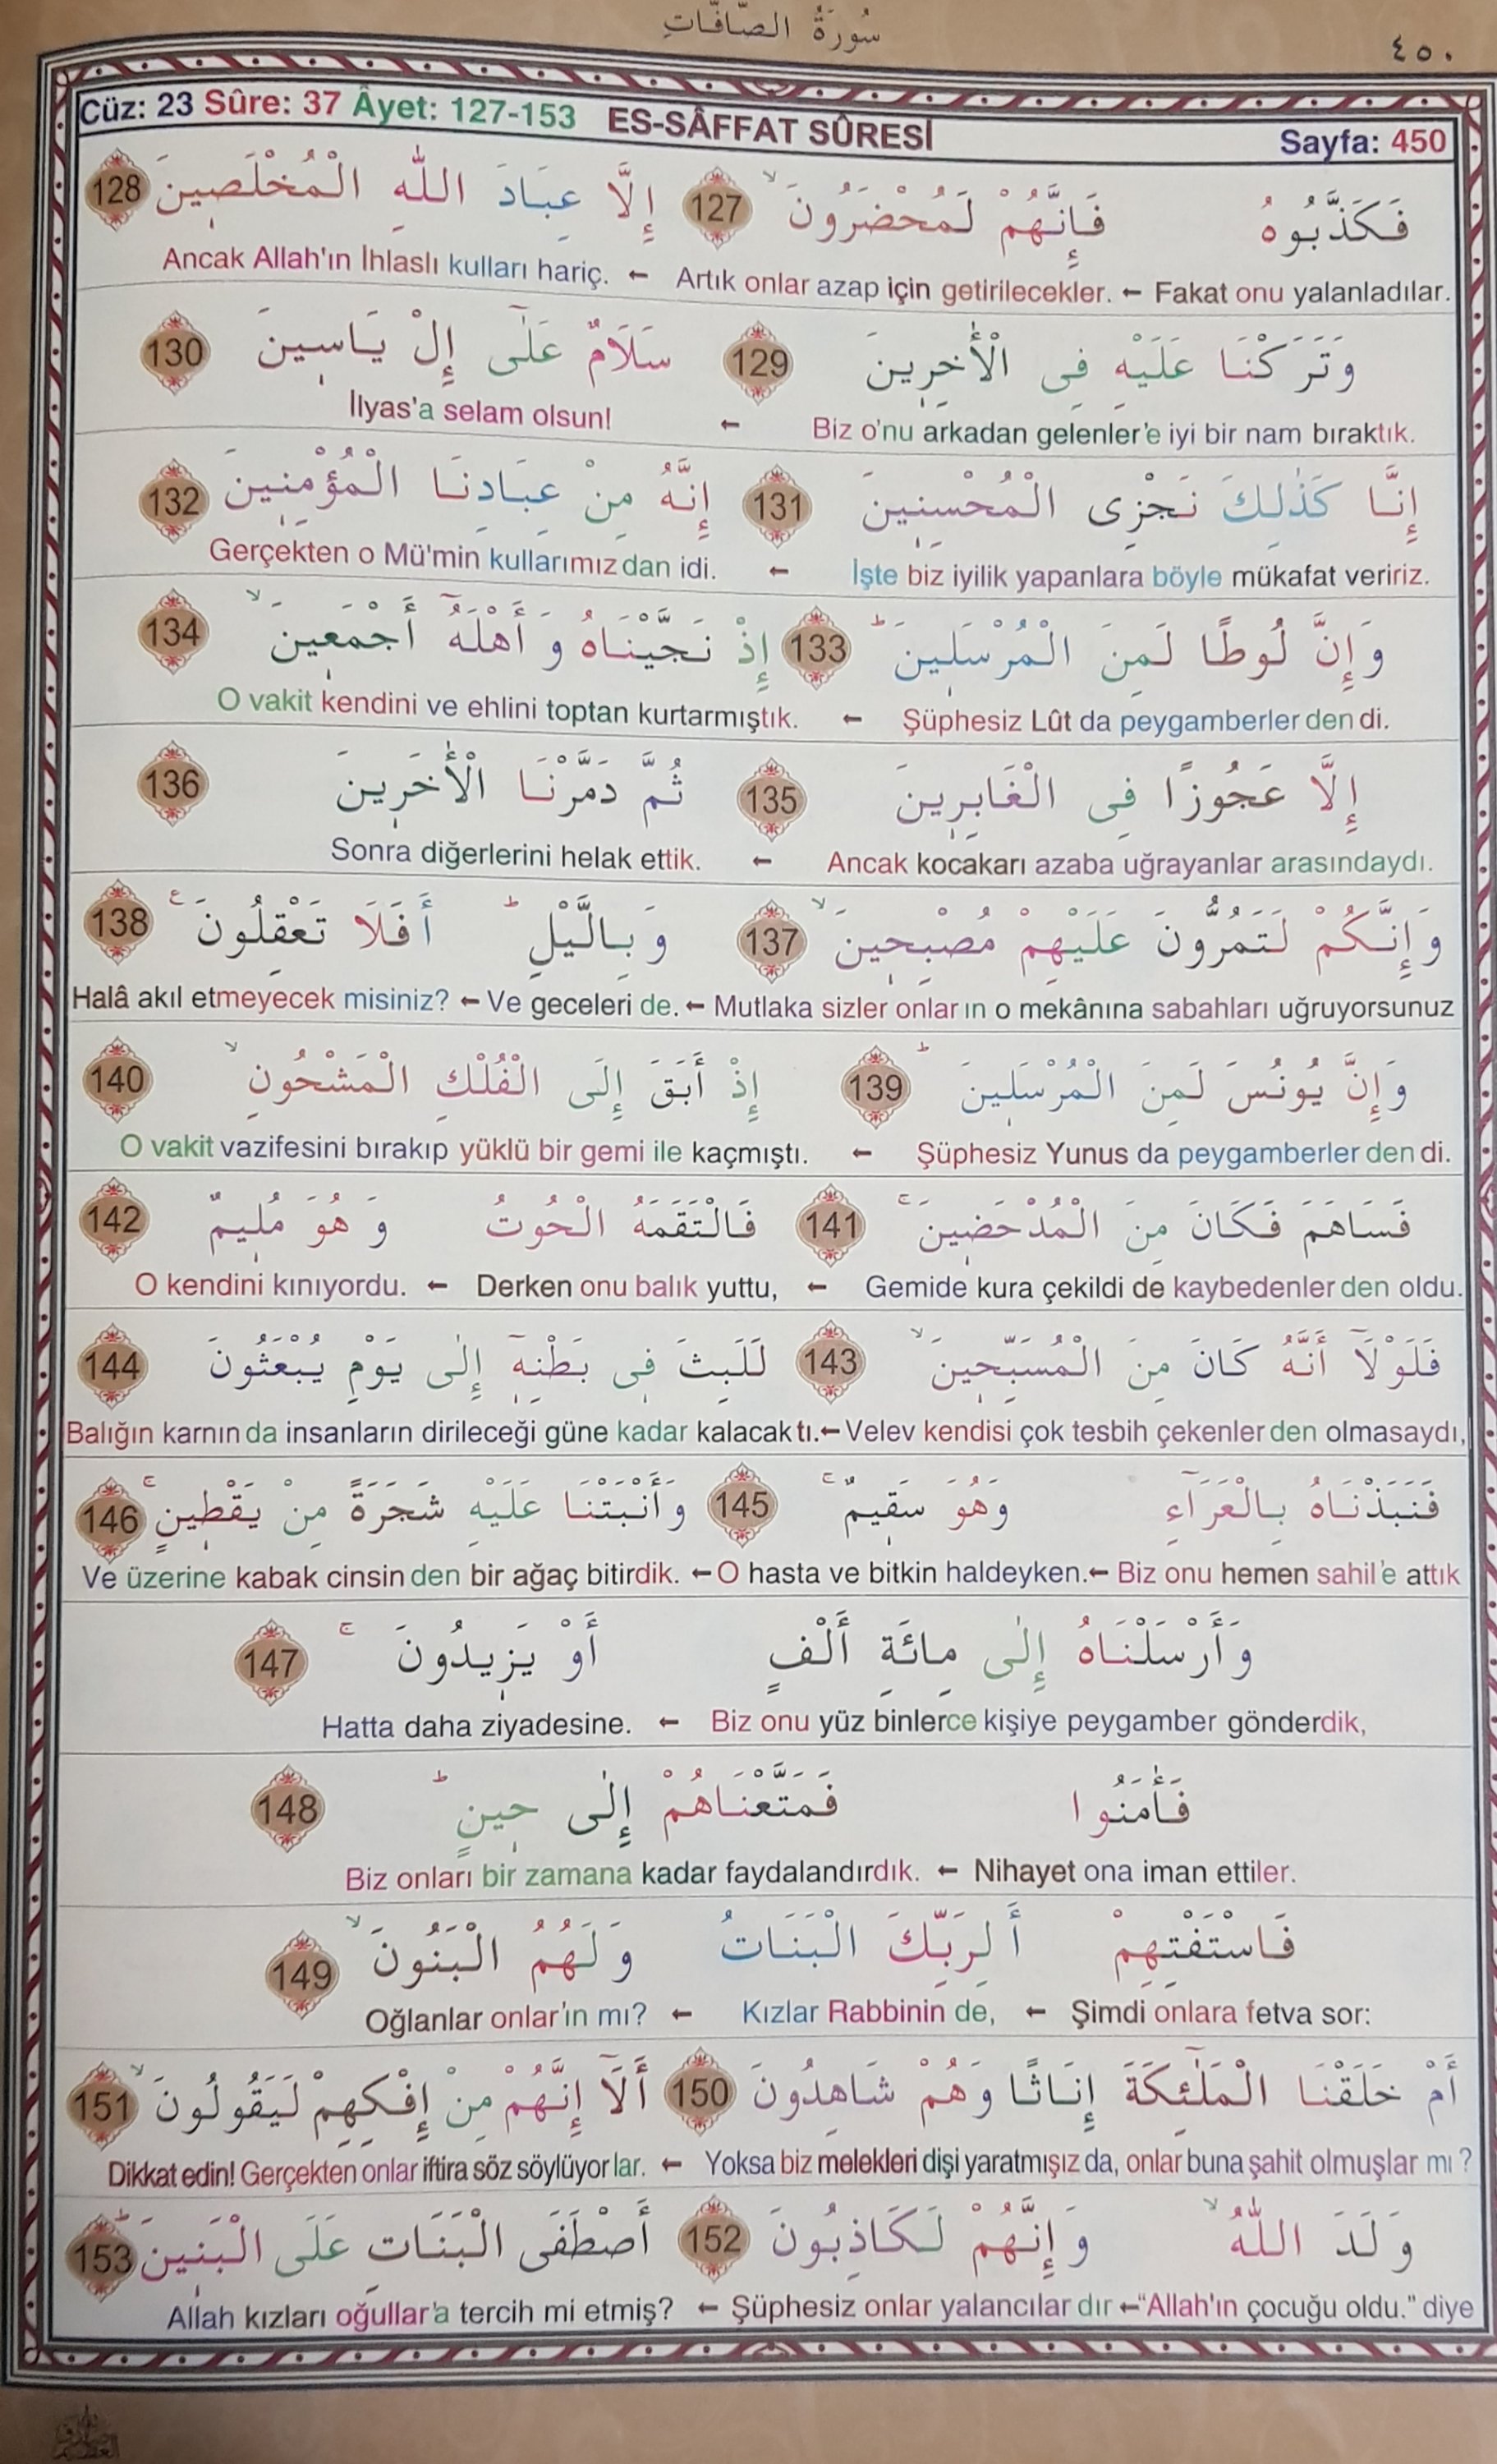 سُورَةُ الصَّافَّاتِ
٤٥٠
Cüz: 23 Sûre: 37 Âyet: 127-153 ES-SÂFFAT SÛRESİ Sayfa: 450
فَكَذَّبُوهُ فَإِنَّهُمْ لَمُحْضَرُونَ 127 إِلَّا عِبَادَ اللّٰهِ الْمُخْلَصِينَ 128
Fakat onu yalanladılar. ← Artık onlar azap için getirilecekler. ← Ancak Allah'ın İhlaslı kulları hariç.
وَتَرَكْنَا عَلَيْهِ فِى الْأٰخِرِينَ 129 سَلَامٌ عَلٰٓى إِلْ يَاسِينَ 130
Biz o'nu arkadan gelenler'e iyi bir nam bıraktık. ← İlyas'a selam olsun!
إِنَّا كَذٰلِكَ نَجْزِى الْمُحْسِنِينَ 131 إِنَّهُ مِنْ عِبَادِنَا الْمُؤْمِنِينَ 132
İşte biz iyilik yapanlara böyle mükafat veririz. ← Gerçekten o Mü'min kullarımızdan idi.
وَإِنَّ لُوطًا لَمِنَ الْمُرْسَلِينَ ط 133 إِذْ نَجَّيْنَاهُ وَ أَهْلَهُٓ أَجْمَعِينَ لا 134
Şüphesiz Lût da peygamberlerdendi. ← O vakit kendini ve ehlini toptan kurtarmıştık.
إِلَّا عَجُوزًا فِى الْغَابِرِينَ 135 ثُمَّ دَمَّرْنَا الْأٰخَرِينَ 136
Ancak kocakarı azaba uğrayanlar arasındaydı. ← Sonra diğerlerini helak ettik.
وَإِنَّكُمْ لَتَمُرُّونَ عَلَيْهِمْ مُصْبِحِينَ لا 137 وَبِالَّيْلِ ط أَفَلَا تَعْقِلُونَ ع 138
Mutlaka sizler onların o mekânına sabahları uğruyorsunuz ← Ve geceleri de. ← Halâ akıl etmeyecek misiniz?
وَإِنَّ يُونُسَ لَمِنَ الْمُرْسَلِينَ ط 139 إِذْ أَبَقَ إِلَى الْفُلْكِ الْمَشْحُونِ لا 140
Şüphesiz Yunus da peygamberlerdendi. ← O vakit vazifesini bırakıp yüklü bir gemi ile kaçmıştı.
فَسَاهَمَ فَكَانَ مِنَ الْمُدْحَضِينَ ج 141 فَالْتَقَمَهُ الْحُوتُ وَ هُوَ مُلِيمٌ 142
Gemide kura çekildi de kaybedenlerden oldu. ← Derken onu balık yuttu, ← O kendini kınıyordu.
فَلَوْلَآ أَنَّهُ كَانَ مِنَ الْمُسَبِّحِينَ لا 143 لَلَبِثَ فِى بَطْنِهِٓ إِلٰى يَوْمِ يُبْعَثُونَ 144
Velev kendisi çok tesbih çekenlerden olmasaydı, ← Balığın karnında insanların dirileceği güne kadar kalacaktı.
فَنَبَذْنَاهُ بِالْعَرَآءِ وَهُوَ سَقِيمٌ ج 145 وَأَنْبَتْنَا عَلَيْهِ شَجَرَةً مِنْ يَقْطِينٍ ج 146
Biz onu hemen sahil'e attık ← O hasta ve bitkin haldeyken. ← Ve üzerine kabak cinsinden bir ağaç bitirdik.
وَأَرْسَلْنَاهُ إِلٰى مِائَةِ أَلْفٍ أَوْ يَزِيدُونَ ج 147
Biz onu yüz binlerce kişiye peygamber gönderdik, ← Hatta daha ziyadesine.
فَأٰمَنُوا فَمَتَّعْنَاهُمْ إِلٰى حِينٍ ط 148
Nihayet ona iman ettiler. ← Biz onları bir zamana kadar faydalandırdık.
فَاسْتَفْتِهِمْ أَلِرَبِّكَ الْبَنَاتُ وَلَهُمُ الْبَنُونَ لا 149
Şimdi onlara fetva sor: ← Kızlar Rabbinin de, ← Oğlanlar onlar'ın mı?
أَمْ خَلَقْنَا الْمَلٰٓئِكَةَ إِنَاثًا وَهُمْ شَاهِدُونَ 150 أَلَآ إِنَّهُمْ مِنْ إِفْكِهِمْ لَيَقُولُونَ لا 151
Yoksa biz melekleri dişi yaratmışız da, onlar buna şahit olmuşlar mı ? ← Dikkat edin! Gerçekten onlar iftira söz söylüyorlar.
وَلَدَ اللّٰهُ لا وَإِنَّهُمْ لَكَاذِبُونَ 152 أَصْطَفَى الْبَنَاتِ عَلَى الْبَنِينَ ط 153
"Allah'ın çocuğu oldu." diye ← Şüphesiz onlar yalancılar dır ← Allah kızları oğullar'a tercih mi etmiş?